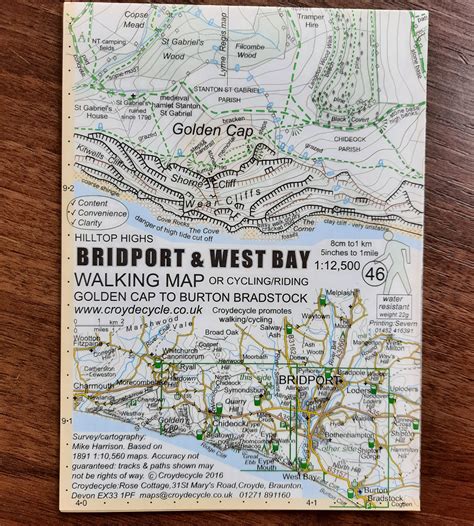 Copse
Mead
NT camping
fields
St Gabriel's
Wood
Lyme Regis map
Filcombe
Wood
Tramper
Hire
STANTON ST GABRIEL
PARISH
St Gabriel's
House
St Gabriel's
ruined
since 1798
medieval
hamlet Stanton
St Gabriel
bracken
Golden Cap
CHIDEOCK
PARISH
grazed
Shorne Cliff
Wear Cliffs
coarse shingle
9-2
Cove Rocks
The Cove
The Corner
danger of high tide cut off
fossils
Content
Convenience
Clarity
HILLTOP HIGHS
8cm to1 km
5inches to 1mile
BRIDPORT & WEST BAY
1:12,500
46
WALKING MAP OR CYCLING/RIDING
GOLDEN CAP TO BURTON BRADSTOCK
www.croydecycle.co.uk
water
resistant
weight 22g
Printing:Severn
01452 416391
Croydecycle promotes
walking/cycling
Melplash
Marshwood
Vale
Broad Oak
Salway
Ash
Wootton
Fitzpaine
Whitchurch
Canonicorum
Ryall
Moorbath
Catherston
Leweston
Morecombelake
North
Chideock
Symondsbury
this side
BRIDPORT
Loders
Uploders
Charmouth
Quarry
Hill
Allington
Hill
Westhay
Golden
Chideock
Eype
Bothenhampton
other side
Seatown
West Bay
Burton
Bradstock
9-1
Survey/cartography:
Mike Harrison. Based on
1891 1:10,560 maps. Accuracy not
guaranteed: tracks & paths shown may
not be rights of way. © Croydecycle 2016
Croydecycle:Rose Cottage,31St Mary's Road,Croyde, Braunton,
Devon EX33 1PF maps@croydecycle.co.uk 01271 891160
4-0
4-1
4-2
4-3
4-4